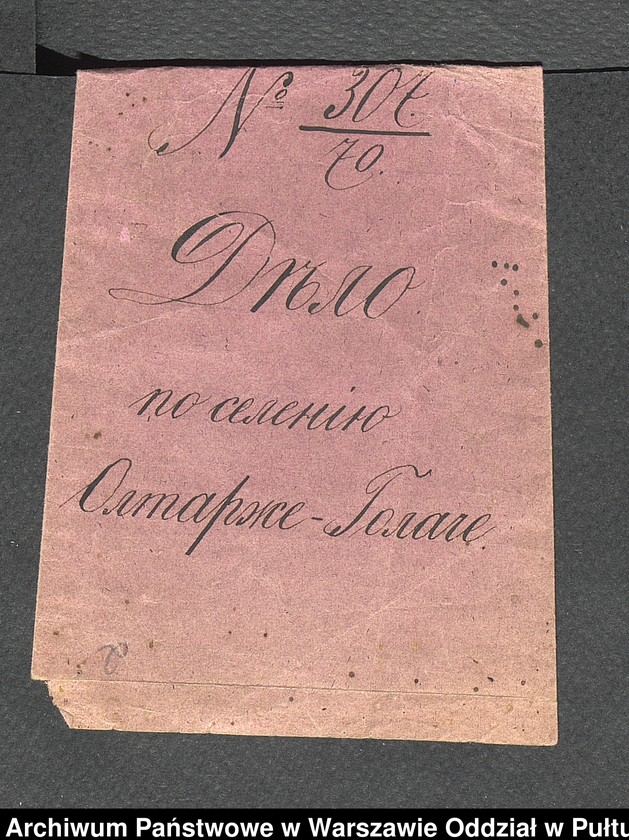 № 307.
70.
Дѣло
по селенію
Олтарже-Голаче
20
Archiwum Państwowe w Warszawie Oddział w Pułtu